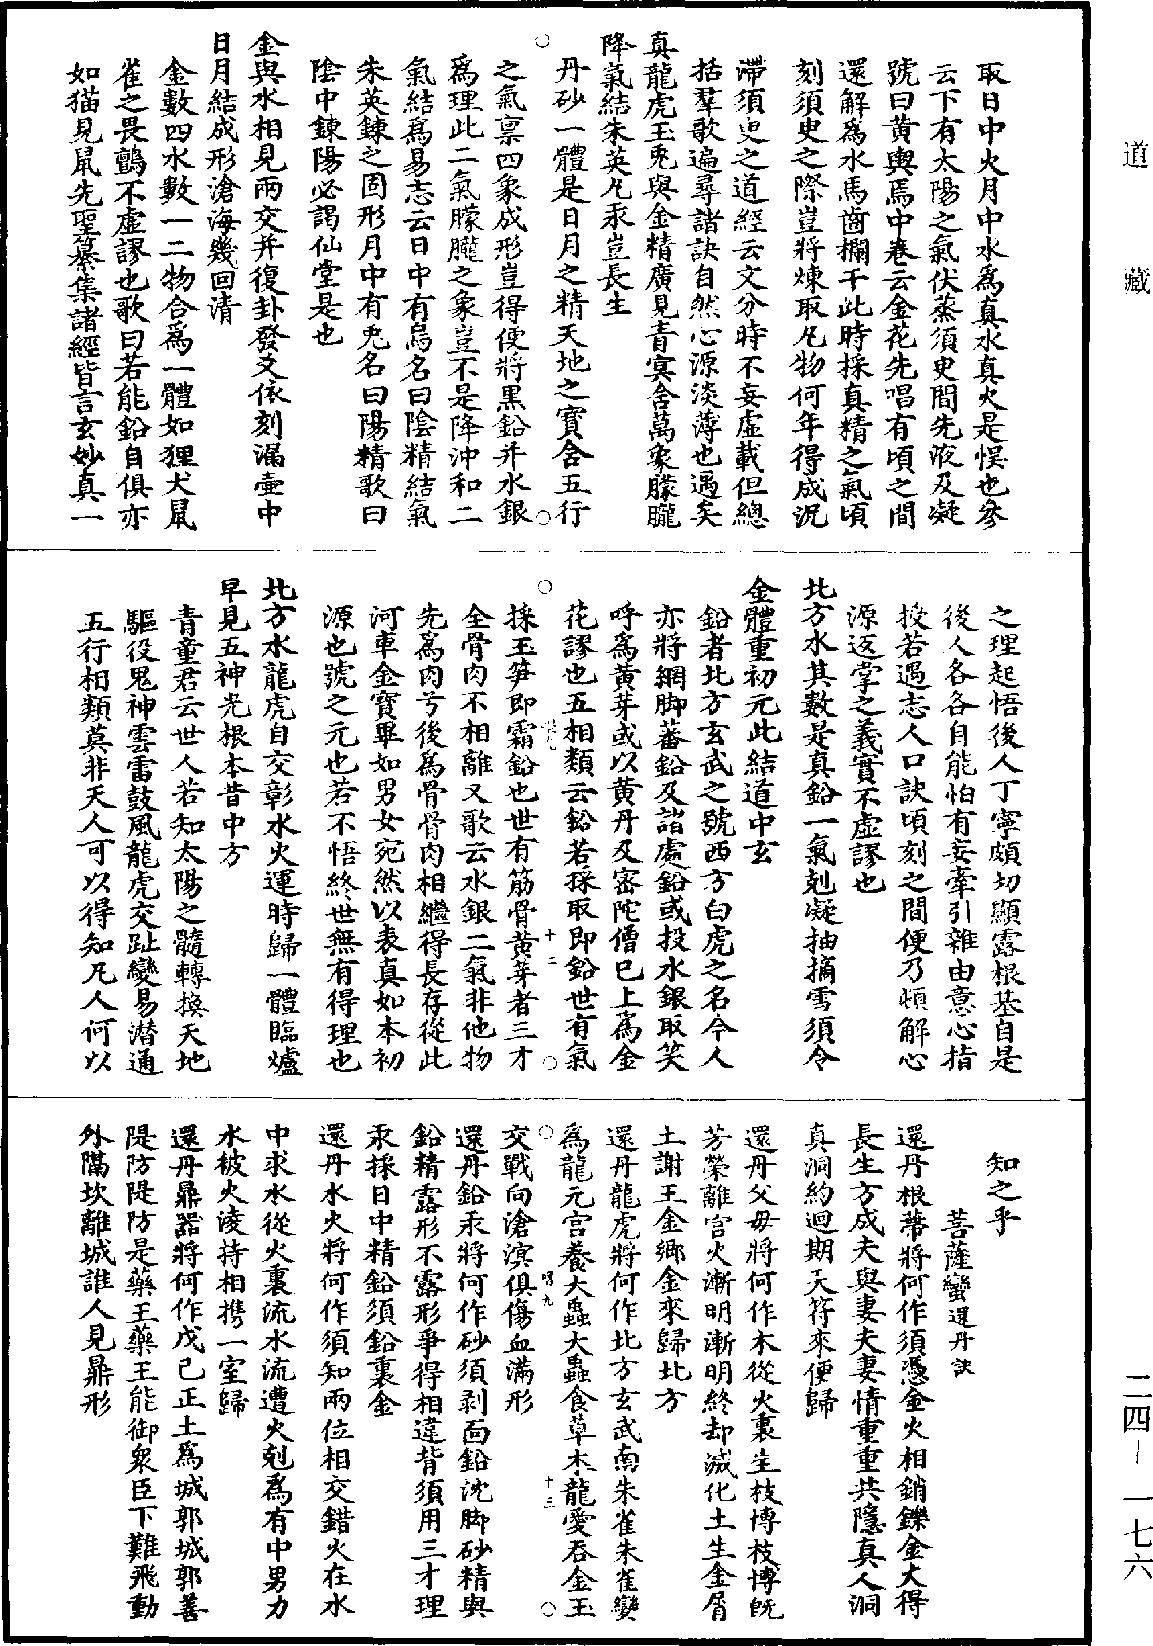 道藏
取日中火月中水為真水真火是悮也參
云下有太陽之氣伏蒸須臾間先液及凝
號曰黃輿焉中卷云金花先唱有頃之間
還解為水馬齒欄干此時採真精之氣頃
刻須臾之際豈將煉取凡物何年得成況
滯須臾之道經云文分時不妄虛載但總
括羣歌遍尋諸訣自然心源淡薄也遇矣
真龍虎玉兎與金精廣見青寅含萬象朦朧
降氣結朱英凡汞豈長生
丹砂一體是日月之精天地之寳含五行
之氣稟四象成形豈得便將黑鉛并水銀
為理此二氣朦朧之象豈不是降沖和二
氣結為易志云日中有烏名曰陰精結氣
朱英鍊之固形月中有兎名曰陽精歌曰
陰中鍊陽必謁仙堂是也
金與水相見兩交并復卦發爻依刻漏壺中
日月結成形滄海幾回清
金數四水數一二物合為一體如狸犬鼠
雀之畏鸇不虛謬也歌曰若能鉛自俱亦
如猫見鼠先聖纂集諸經皆言玄妙真一
之理起悟後人丁寧頗切顯露根基自是
後人各各自能怕有妄牽引雜由意心指
投若遇志人口訣頃刻之間便乃頓解心
源返掌之義實不虛謬也
北方水其數是真鉛一氣剋凝抽摘雪須令
金體重初元此結道中玄
鉛者北方玄武之號西方白虎之名今人
亦將網脚蕃鉛及諸處鉛或投水銀取笑
呼為黃芽或以黃丹及密陀僧巳上為金
花謬也五相類云鉛若採取即鉛世有氣
十二
採玉笋即霜鉛也世有筋骨黃芽者三才
全骨肉不相離又歌云水銀二氣非他物
先為肉兮後為骨骨肉相繼得長存從此
河車金寳畢如男女宛然以表真如本初
源也號之元也若不悟終世無有得理也
北方水龍虎自交彰水火運時歸一體臨爐
早見五神光根本昔中方
青童君云世人若知太陽之髓轉換天地
驅役鬼神雲雷鼓風龍虎交趾變易潛通
五行相類莫非天人可以得知凡人何以
知之乎
菩薩蠻還丹訣
還丹根蔕將何作須憑金火相銷鑠金大得
長生方成夫與妻夫妻情重重共隱真人洞
真洞約迴期天符來便歸
還丹父母將何作木從火裏生枝博枝博旣
芳榮離宫火漸明漸明終却滅化土生金屑
土謝王金鄉金來歸北方
還丹龍虎將何作北方玄武南朱雀朱雀變
為龍元宫養大蟲大蟲食草木龍愛吞金玉
十三
交戰向滄溟俱傷血滿形
還丹鉛汞將何作砂須剥面鉛沈脚砂精與
鉛精露形不露形爭得相違背須用三才理
汞採日中精鉛須鉛裏金
還丹水火將何作須知兩位相交錯火在水
中求水從火裏流水流遭火剋為有中男力
水被火淩持相携一室歸
還丹鼎器將何作戊己正土為城郭城郭善
隄防隄防是藥王藥王能御衆臣下難飛動
外隔坎離城誰人見鼎形
二四-一七六